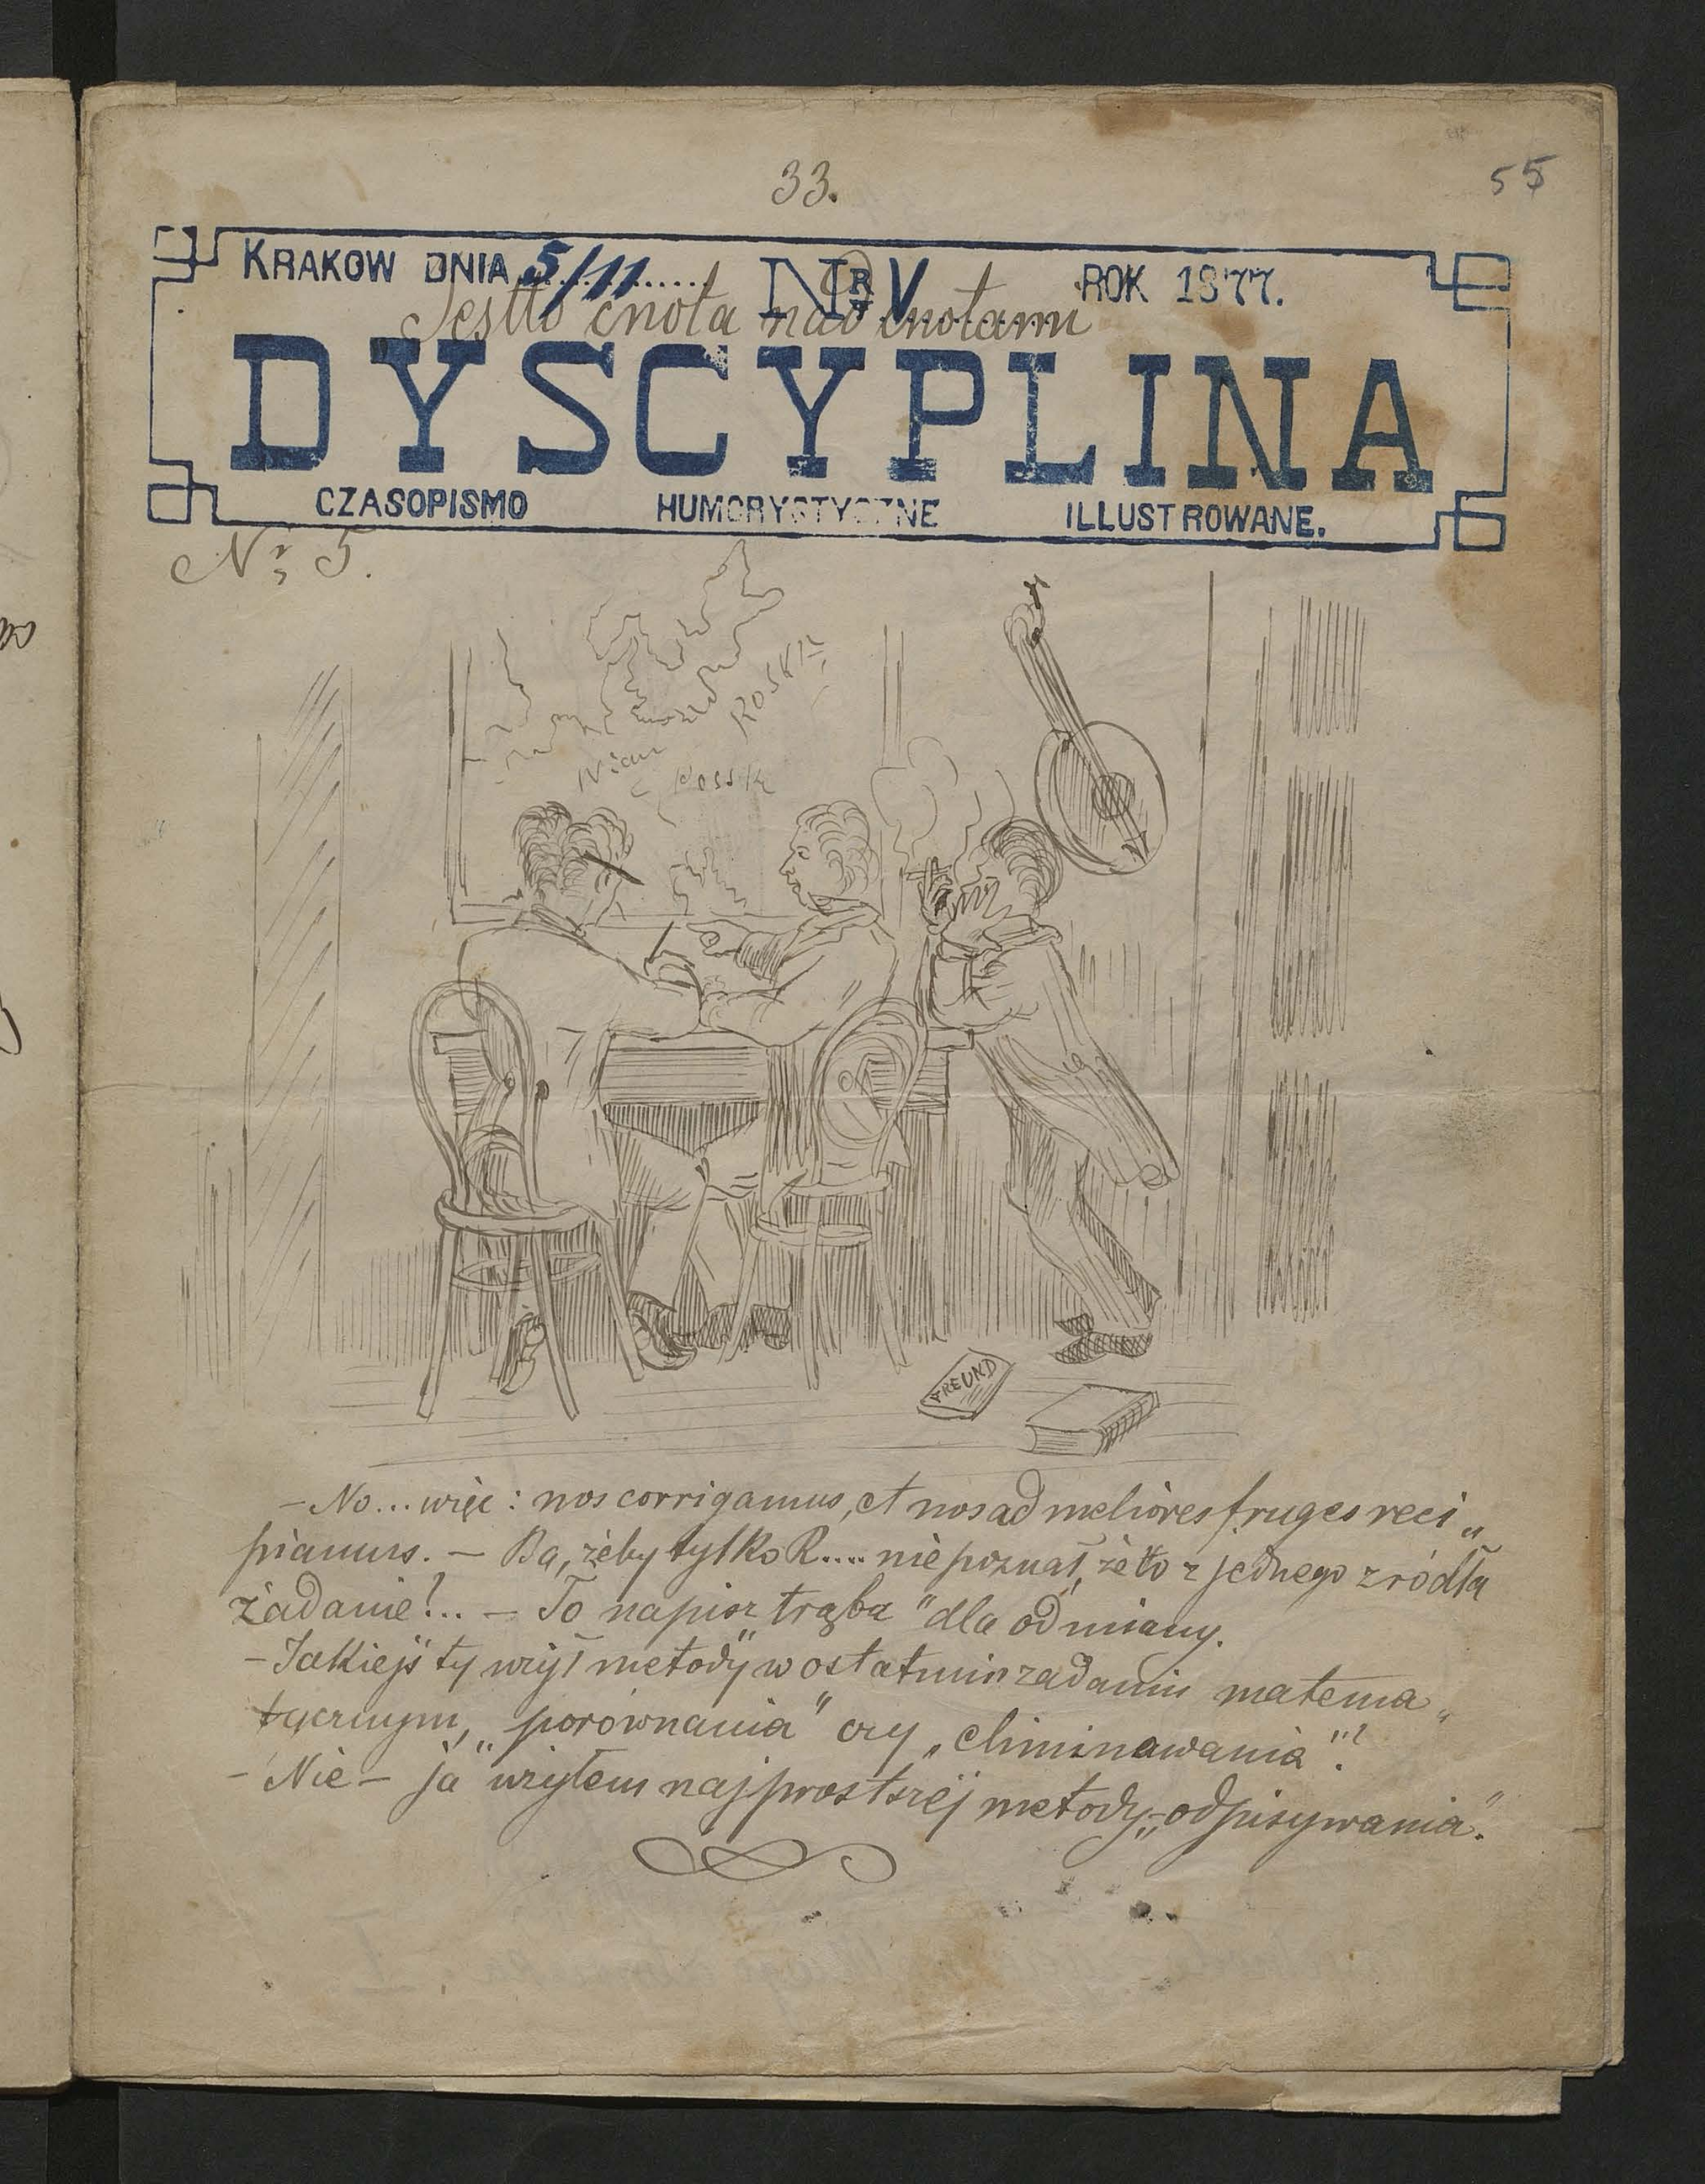 33.
55
KRAKOW DNIA 5/11 NR V ROK 1877.
Jestto cnota nad cnotami
DYSCYPLINA
CZASOPISMO HUMORYSTYCZNE ILLUSTROWANE.
Nr 5.
FREUND
– No... więc: nos corrigamus, et nos ad meliores fruges reci„
pianuus. – Ba, żeby tylko R.... nie poznał, że to z jednego źródła
żadanie!.. – To napisz „trąba" dla odmiany.
– Jakiejś ty użył metody w ostatnim zadaniu matema„
tycznym, „porównania" czy „eliminawania"?
– Nie – ja użyłem najprostszéj metody „odpisywania".